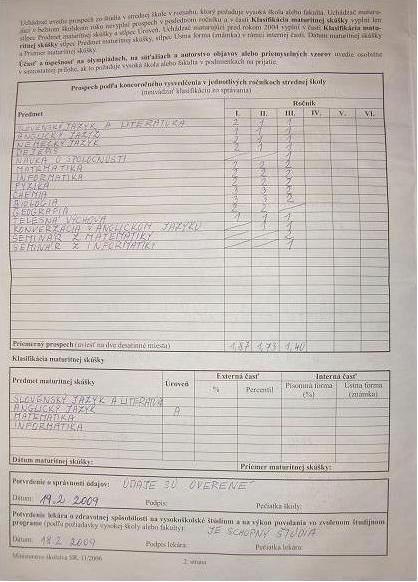 Uchádzač uvedie prospech zo štúdia v strednej škole v rozsahu, ktorý požaduje vysoká škola alebo fakulta. Uchádzač maturujúci v bežnom školskom roku nevyplní prospech v poslednom ročníku a v časti Klasifikácia maturitnej skúšky vyplní len
stĺpec Predmet maturitnej skúšky a stĺpec Úroveň. Uchádzač maturujúci pred rokom 2004 vyplní v časti Klasifikácia maturitnej skúšky stĺpec Predmet maturitnej skúšky, stĺpec Ústna forma (známka) v rámci internej časti, Dátum maturitnej skúšky
a Priemer maturitnej skúšky.
Účasť a úspešnosť na olympiádach, na súťažiach a autorstvo objavov alebo priemyselných vzorov uvedie osobitne
v samostatnej prílohe, ak to požaduje vysoká škola alebo fakulta v podmienkach na prijatie.
Prospech podľa koncoročného vysvedčenia v jednotlivých ročníkoch strednej školy
(neuvádzať klasifikáciu zo správania)
Ročník
Predmet I. II. III. IV. V. VI.
SLOVENSKÝ JAZYK A LITERATÚRA 2 1 1
ANGLICKÝ JAZYK 1 1 1
NEMECKÝ JAZYK 2 1 1
DEJEPIS 2 1 1
NÁUKA O SPOLOČNOSTI 1
MATEMATIKA 2 2 2
INFORMATIKA 2 2 2
FYZIKA 2 2 2
CHÉMIA 3 3 2
BIOLÓGIA 3 3 2
GEOGRAFIA 2 2
TELESNÁ VÝCHOVA 1 1 1
KONVERZÁCIA V ANGLICKOM JAZYKU 1 1
SEMINÁR Z MATEMATIKY 1
SEMINÁR Z INFORMATIKY 1
Priemerný prospech (uviesť na dve desatinné miesta) 1,87 1,73 1,40
Klasifikácia maturitnej skúšky
Predmet maturitnej skúšky Úroveň Externá časť Interná časť
% Percentil Písomná forma (%) Ústna forma (známka)
SLOVENSKÝ JAZYK A LITERATÚRA
ANGLICKÝ JAZYK A
MATEMATIKA
INFORMATIKA
Dátum maturitnej skúšky: Priemer maturitnej skúšky:
Potvrdenie o správnosti údajov: ÚDAJE SÚ OVERENÉ
Dátum: 19.2 2009 Podpis: Pečiatka školy:
Potvrdenie lekára o zdravotnej spôsobilosti na vysokoškolské štúdium a na výkon povolania vo zvolenom študijnom
programe (podľa požiadavky vysokej školy alebo fakulty): JE SCHOPNÝ ŠTÚDIA
Dátum: 18.2 2009 Podpis lekára: Pečiatka lekára:
Ministerstvo školstva SR, 11/2006
2. strana